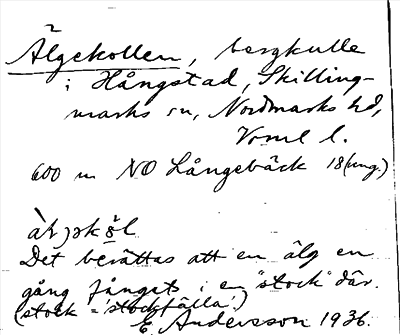 Älgekollen, bergkulle
i Hångstad, Skilling-
marks sn, Nordmarks hd,
Vrml l.
600 m NO Långebäck 18(ung.)
Det berättas att en älg en
gång fångats i en "stock" där.
(stock = 'stockfälla'.)
E. Andersson 1936.